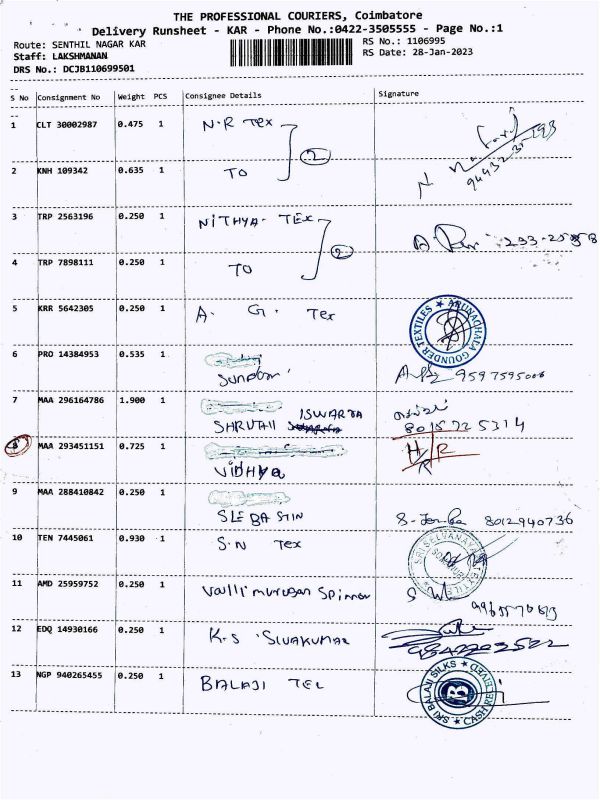 THE PROFESSIONAL COURIERS, Coimbatore
Delivery Runsheet - KAR - Phone No.:0422-3505555 - Page No.:1
Route: SENTHIL NAGAR KAR
RS No.: 1106995
Staff: LAKSHMANAN
RS Date: 28-Jan-2023
DRS No.: DCJB110699501
S No Consignment No Weight PCS Consignee Details Signature
1 CLT 30002987 0.475 1 N.R Tex
2 KNH 109342 0.635 1 TO 2
3 TRP 2563196 0.250 1 NITHYA. TEX
4 TRP 7898111 0.250 1 TO 2
5 KRR 5642305 0.250 1 A. G. Tex
ARUNACHALA GOUNDER TEXTILES
6 PRO 14384953 0.535 1 9597595006
7 MAA 296164786 1.900 1 SHRUTHI ISWARYA 8015725314
8 MAA 293451151 0.725 1 VIDHYA H/R
9 MAA 288410842 0.250 1 SLEBASTIN 8012940736
10 TEN 7445061 0.930 1 S.N Tex
11 AMD 25959752 0.250 1 Vallimurugan Spinner
12 EDQ 14930166 0.250 1 K.S SIVAKUMAR
13 NGP 940265455 0.250 1 BALAJI TEX
SRI BALAJI SILKS